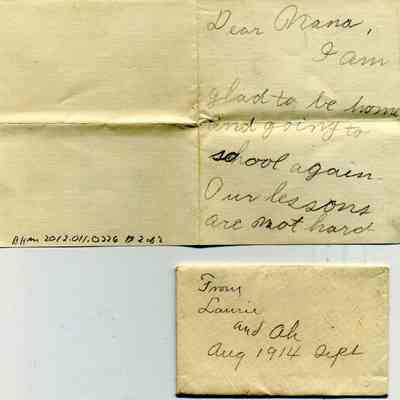 Dear Nana,
I am
glad to be home
and going to
school again.
Our lessons
are not hard
BHM 2012.011.0226
From
Laurie
and
Aug 1914 Sept